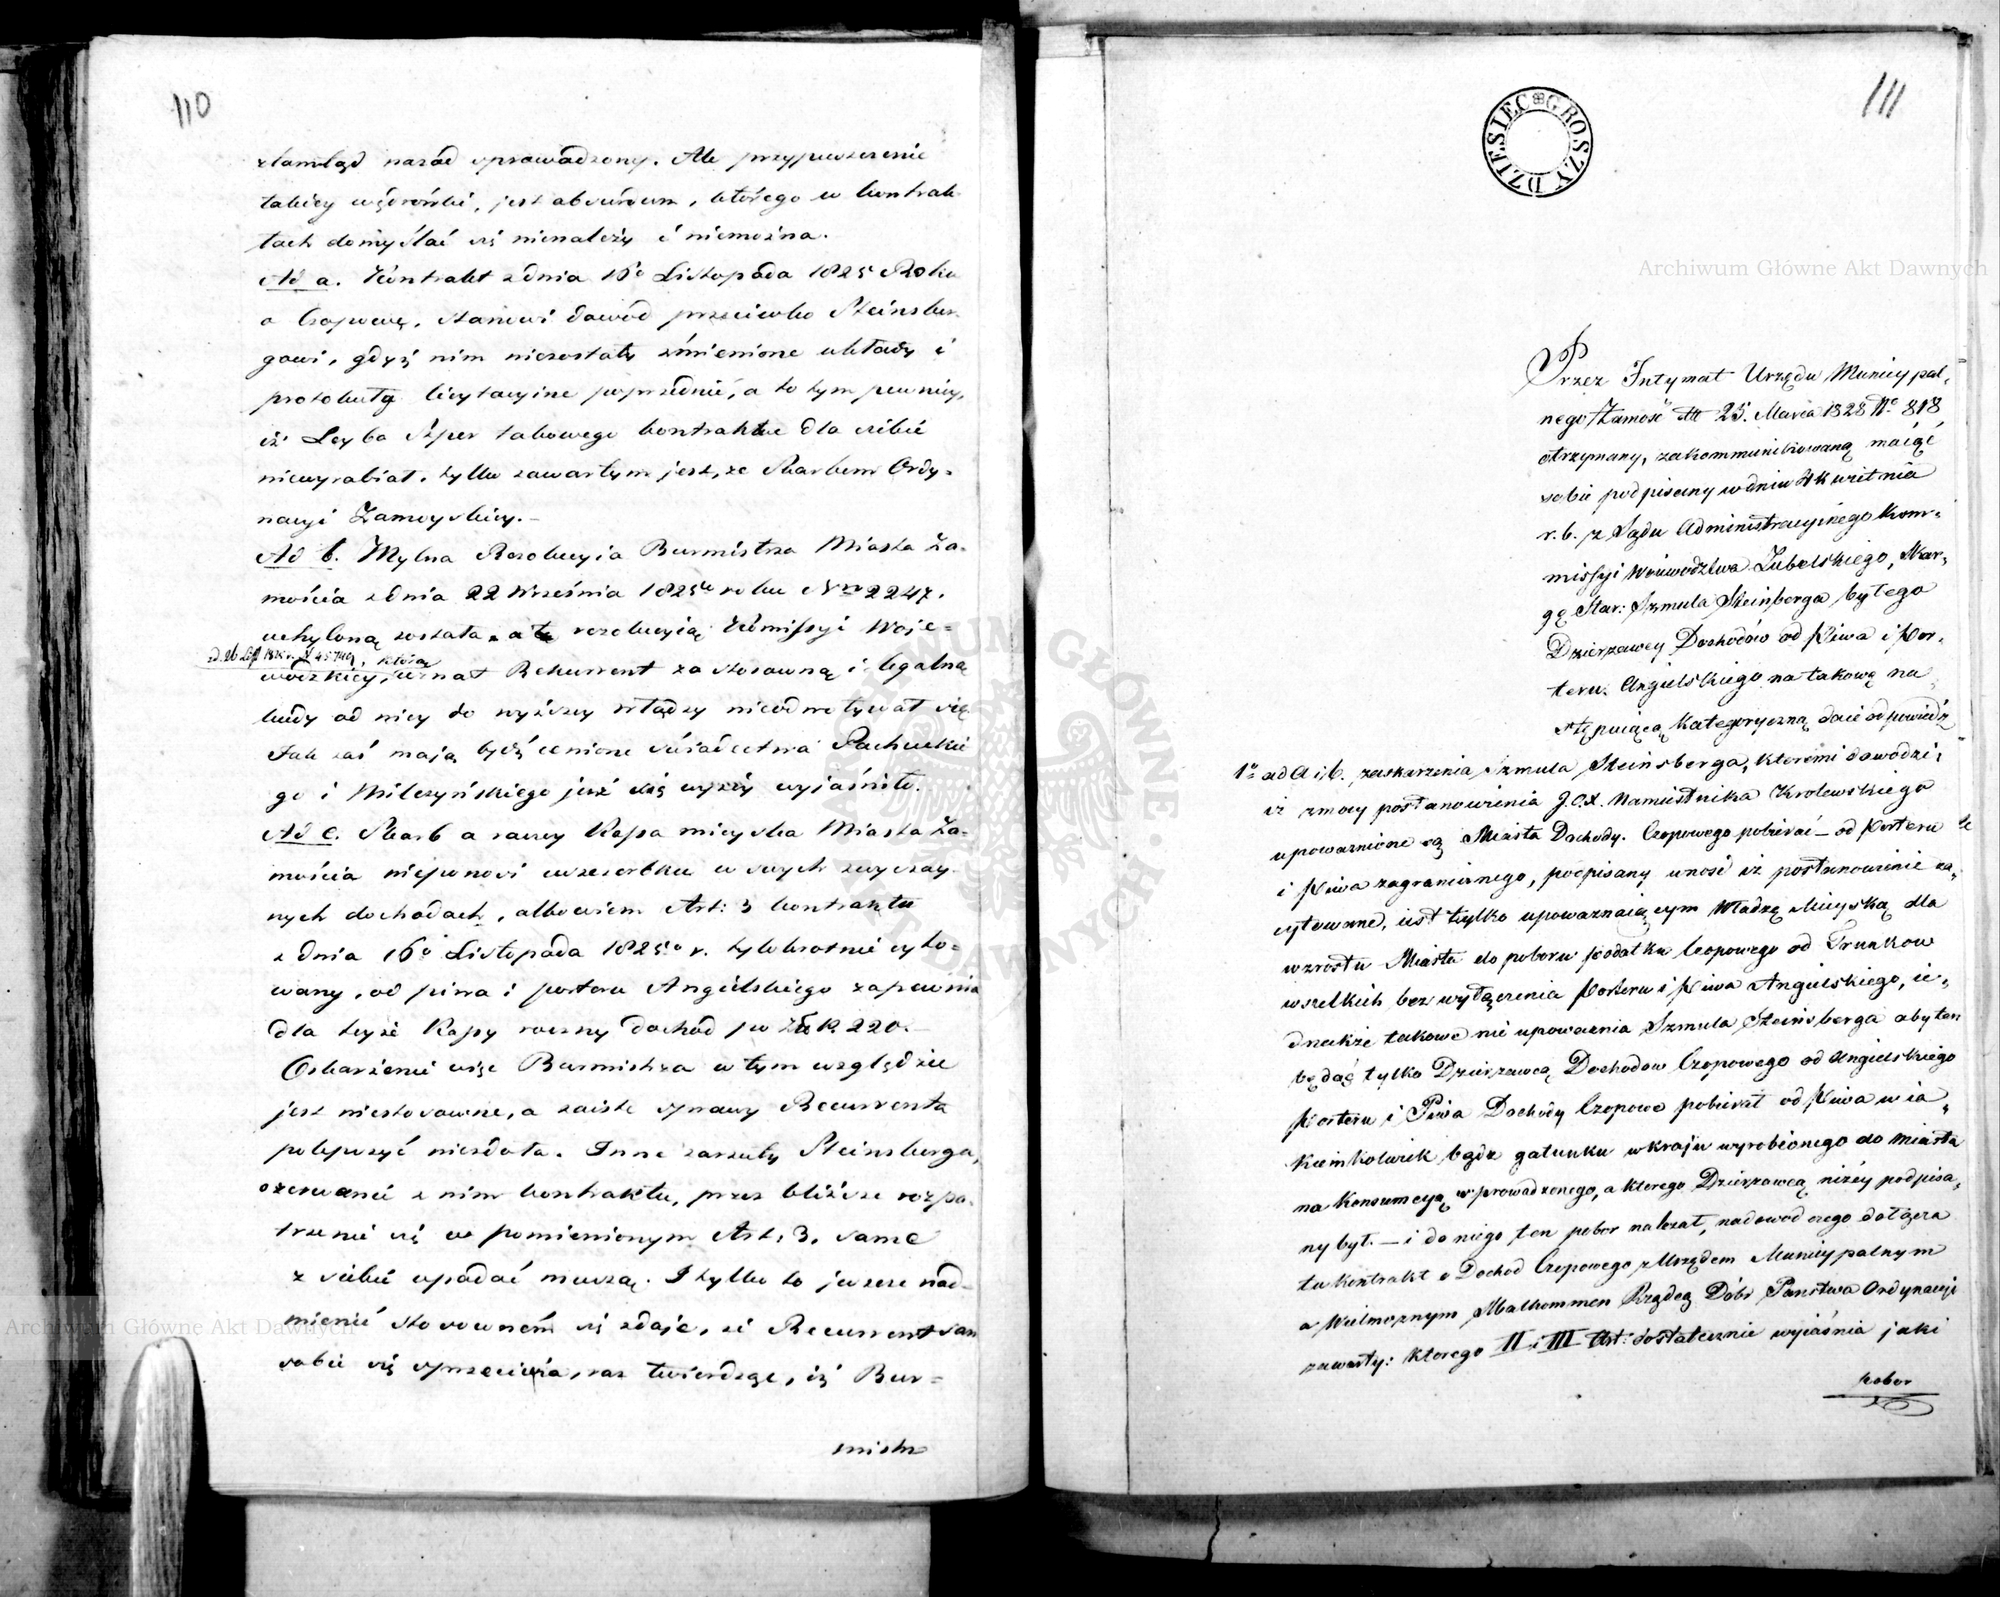 110
ztamtąd nazad sprowadzony. Ale przypuszczenie
takiey wędrówki, jest absurdum, którego w kontrak-
tach domyślać się nienależy i niemożna.
Ad a. Kontrakt z dnia 16o Listopada 1825 Roku
o Czopowe, stanowi dowód przeciwko Steinsber-
gowi, gdyż nim niezostały zmienione układy i
protokuły licytacyine poprzednie, a to tym pewniey,
iż Leyba Szper takowego kontraktu dla siebie
niewyrabiał, tylko zawartym jest, ze Skarbem Ordy-
nacyi Zamoyskiey.
Ad b. Mylna Rezolucyia Burmistrza Miasta Za-
mościa z dnia 22 Września 1825 roku Nro 2247.
uchyloną została, a tę rezolucyią Komissyi Woje-
wódzkiey, którą uznał Rekurrent za stosowną i legalną
kiedy od niey do wyższey władzy nieodwoływał się
Jak zaś mają bydź cenione świadectwa Pachuckie
go i Milczyńskiego już się wyżey wyjaśniło.
Ad c. Skarb a raczey Kassa mieyska Miasta Za-
mościa nieponosi uszczerbku w swych zwyczay-
nych dochodach, albowiem Art: 3 kontraktu
z dnia 16o Listopada 1825o r. tylokrotnie cyto-
wany, od piwa i porteru Angielskiego zapewnia
dla teyże Kassy roczny dochód po Złt 220.
Oskarżenie więc Burmistrza w tym względzie
jest niestosowne, a zaiste sprawy Recurrenta
polepszyć niezdoła. Inne zarzuty Steinsberga,
o zerwanie z nim kontraktu, przez bliższe rozpa-
trzenie się w pomienionym Art. 3. same
z siebie upadać muszą. I tylko to jeszcze nad-
mienić stosownem się zdaje, że Recurrent sam
sobie się sprzeciwia, raz twierdząc, iż Bur-
mistrz
111
DZIESIEC GROSZY
Przez Intymat Urzędu Municypal-
nego Zamość dtt 25. Marca 1828 No 818
otrzymany, zakommunikowaną maiąć
sobie podpisany w dniu 4 Kwietnia
r. b. z Sądu Administracyinego Kom-
missyi Woiewodztwa Lubelskiego, Skar-
gę Star: Szmula Steinberga byłego
Dzierzawcy Dochodów od Piwa i Por-
teru Angielskiego na takową na
stępuiącą Kategoryczną daie odpowiedź
1o ad A i b. zaskarzenia Szmula Steinsberga, któremi dowodzi,
iż z mocy postanowienia J.O.X. Namiestnika Krolewskiego
upowaznione są Miasta Dochody Czopowego pobierać – od Porteru
i Piwa zagranicznego, podpisany wnosi iż postanowienie za-
cytowane, iest tylko upowazniaiącym Władzę Mieyską dla
wzrostu Miasta do poboru podatku Czopowego od Trunkow
wszelkich bez wyłączenia Porteru i Piwa Angielskiego, ie-
dnakże takowe nie upowaznia Szmula Steinsberga aby ten
będąc tylko Dzierzawcą Dochodow Czopowego od Angielskiego
Porteru i Piwa Dochody Czopowe pobierał od Piwa w ia-
kiemkolwiek bądz gatunku w kraju wyrobionego do Miasta
na Konsumcyą wprowadzonego, a ktorego Dzierzawcą niżey podpisa-
ny był. – i do niego ten pobor nalezał, na dowod czego dołącza
tu kontrakt o Dochod Czopowego z Urzędem Municypalnym
a Wielmoznym Malhommen Rządcą Dobr Państwa Ordynacyi
zawarty: ktorego II i III Art: dostatecznie wyiaśnia jaki
pobor
Archiwum Główne Akt Dawnych
Archiwum Główne Akt Dawnych
ARCHIWUM GŁÓWNE AKT DAWNYCH